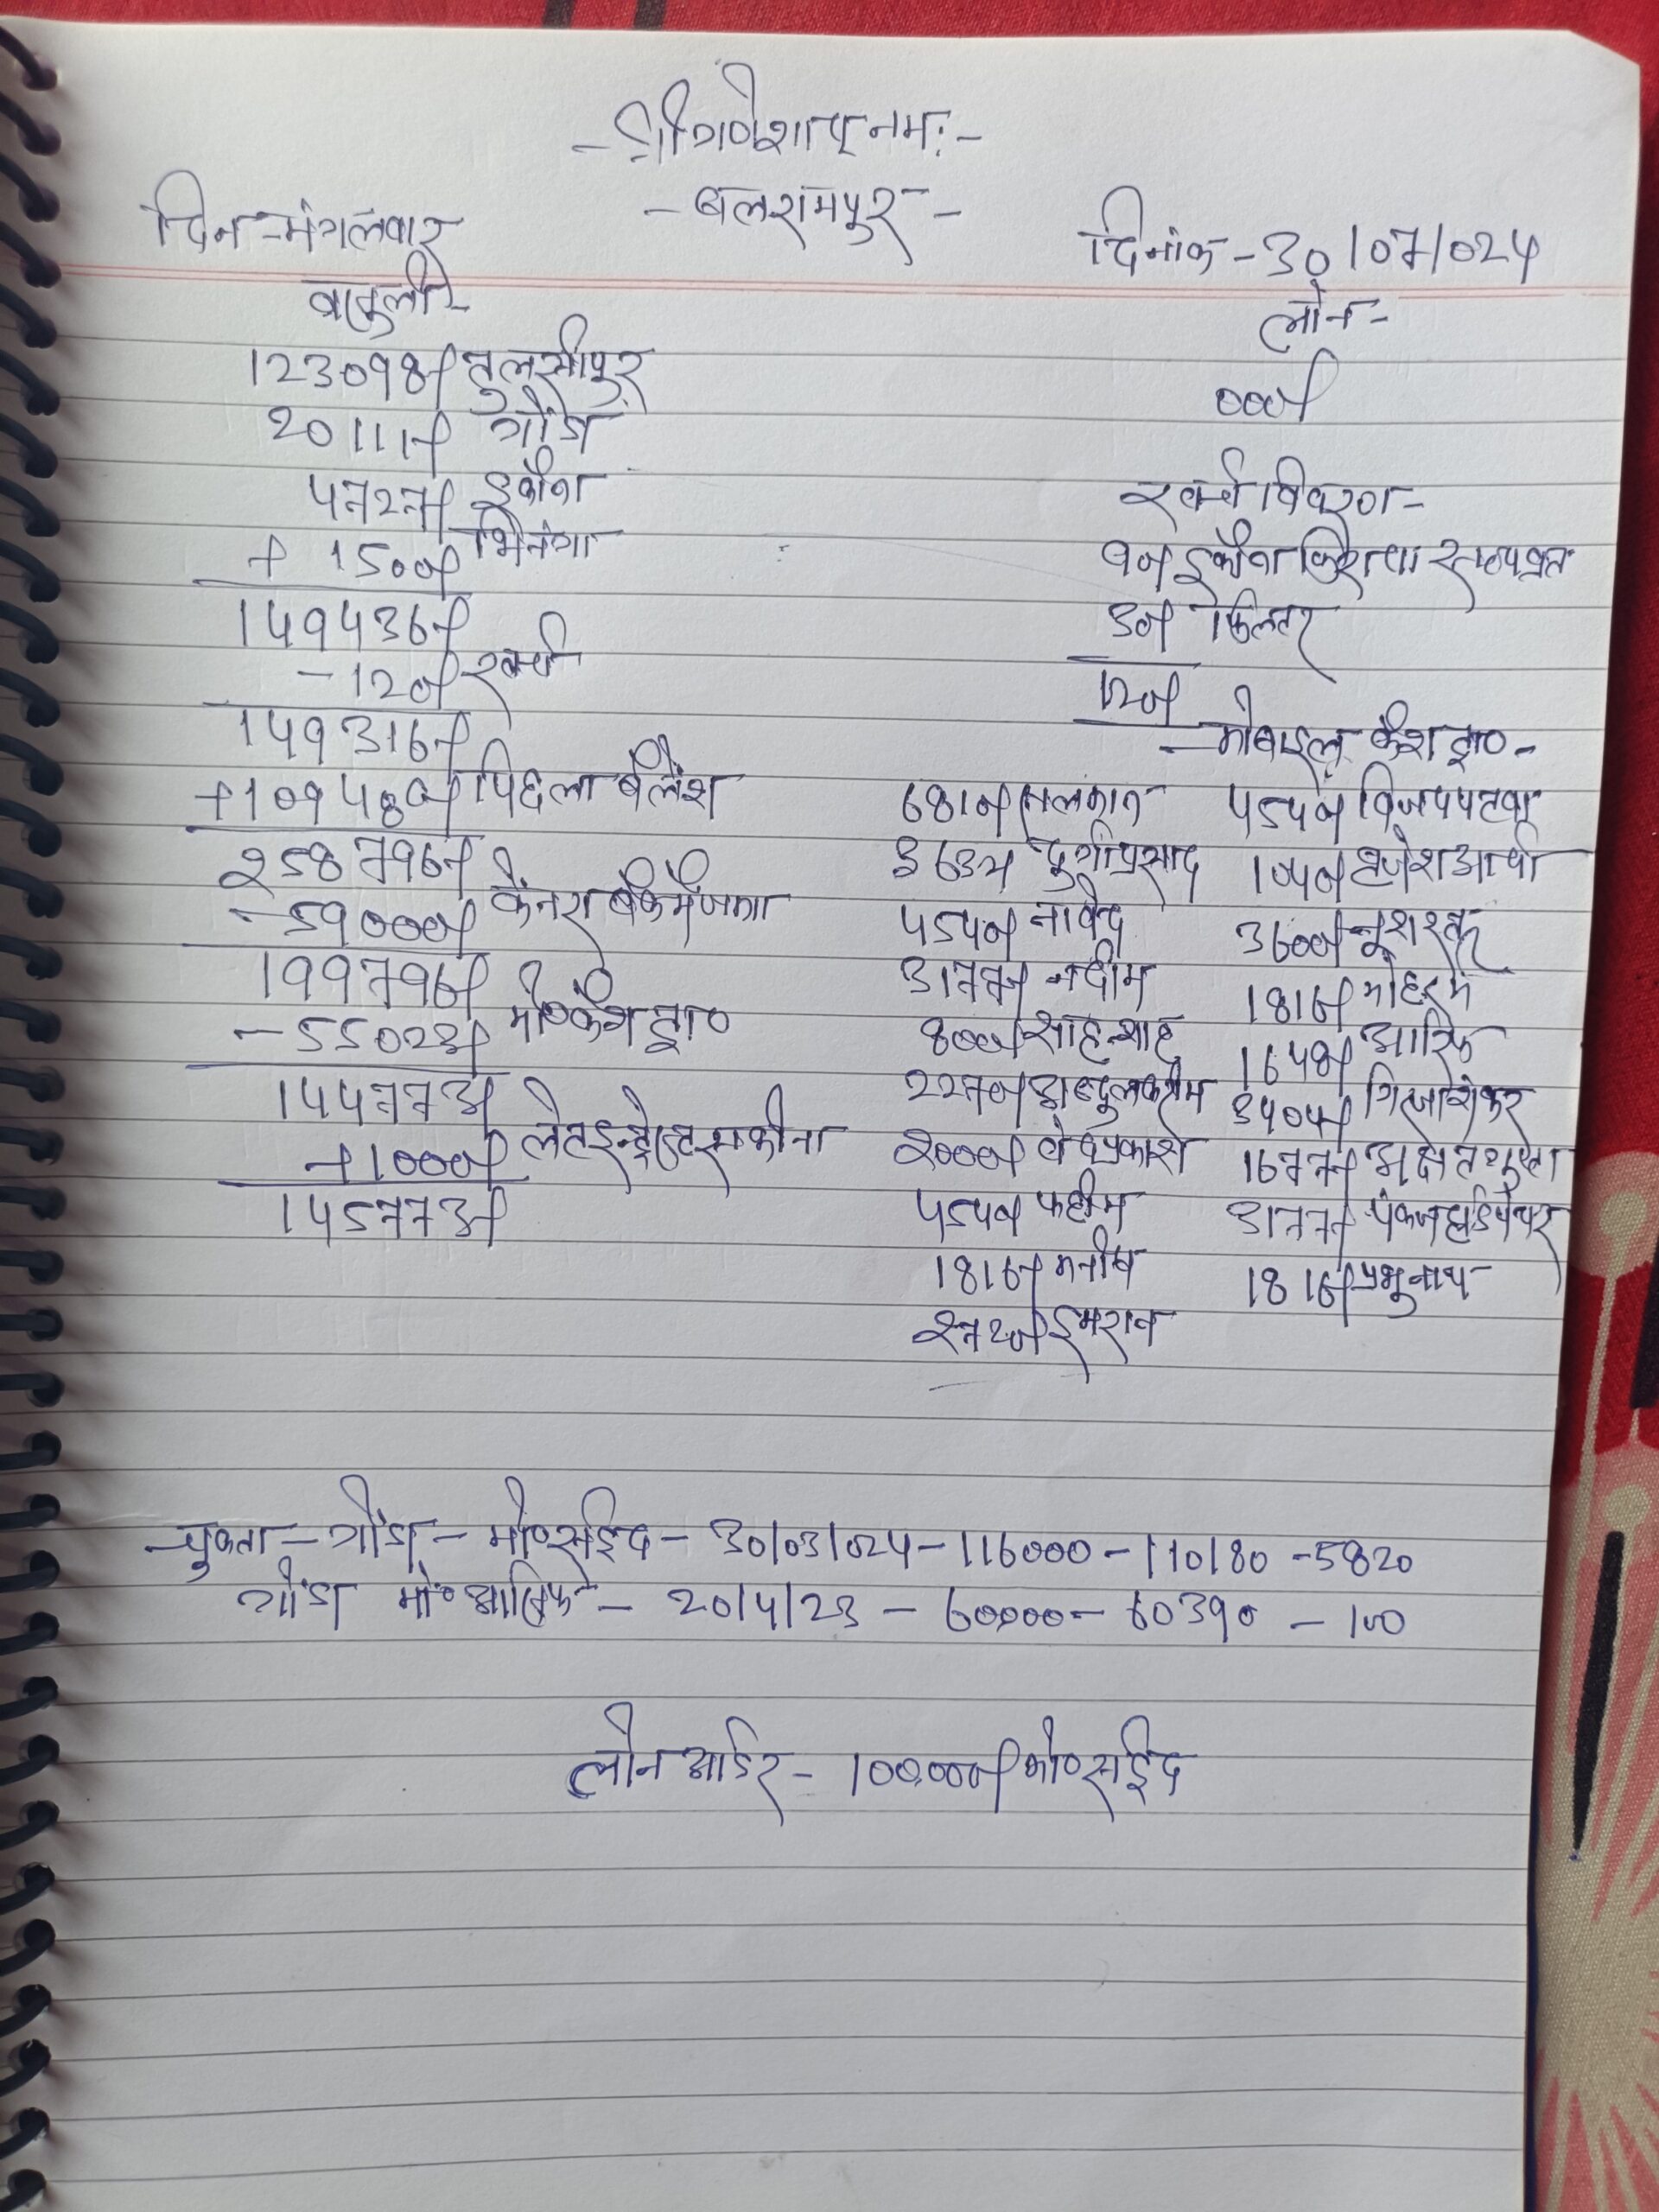 -श्री गणेशाय नमः-
-बलरामपुर-
दिन-मंगलवार
दिनांक-30/07/024
वसुली-
लोन-
123098/- तुलसीपुर
000/-
20111/- गोंडा
4727/- इकौना
खर्चा विवरण-
+ 1500/- भिनंगा
90/- इकौना किराया
149436/-
30/- फिल्टर
-120/- खर्चा
120/-
149316/-
-मोबाइल कैश ट्रा०-
+109480/- पिछला बैलेंश
6810/- सलमान
4540/- विजय पटवा
3633/- दुर्गाप्रसाद
1040/- बृजेश आर्या
258796/-
4540/- नावेद
3600/-
-59000/- केनरा बैंक में जमा
3177/- नदीम
1816/- मोहर्रम
199796/-
8000/- साहन्शाह
1648/- आरिफ
-55023/- मो० कैश ट्रा०
2270/- अब्दुल करीम
3404/- गिरजाशंकर
144773/-
2000/- वेदप्रकाश
1677/- अक्षत गुप्ता
+1000/- लेट इन्ट्रेस्ट सकीना
4540/- फहीम
3177/- पंकज
145773/-
1816/- मनीष
1816/- प्रभुनाथ
2720/- इमरान
-चुकता-गोंडा-मो० सईद-30/03/024-116000-110180-5820
गोंडा मो० आसिफ-20/4/23-60000-60390-100
लोन आर्डर-100000/- मो० सईद